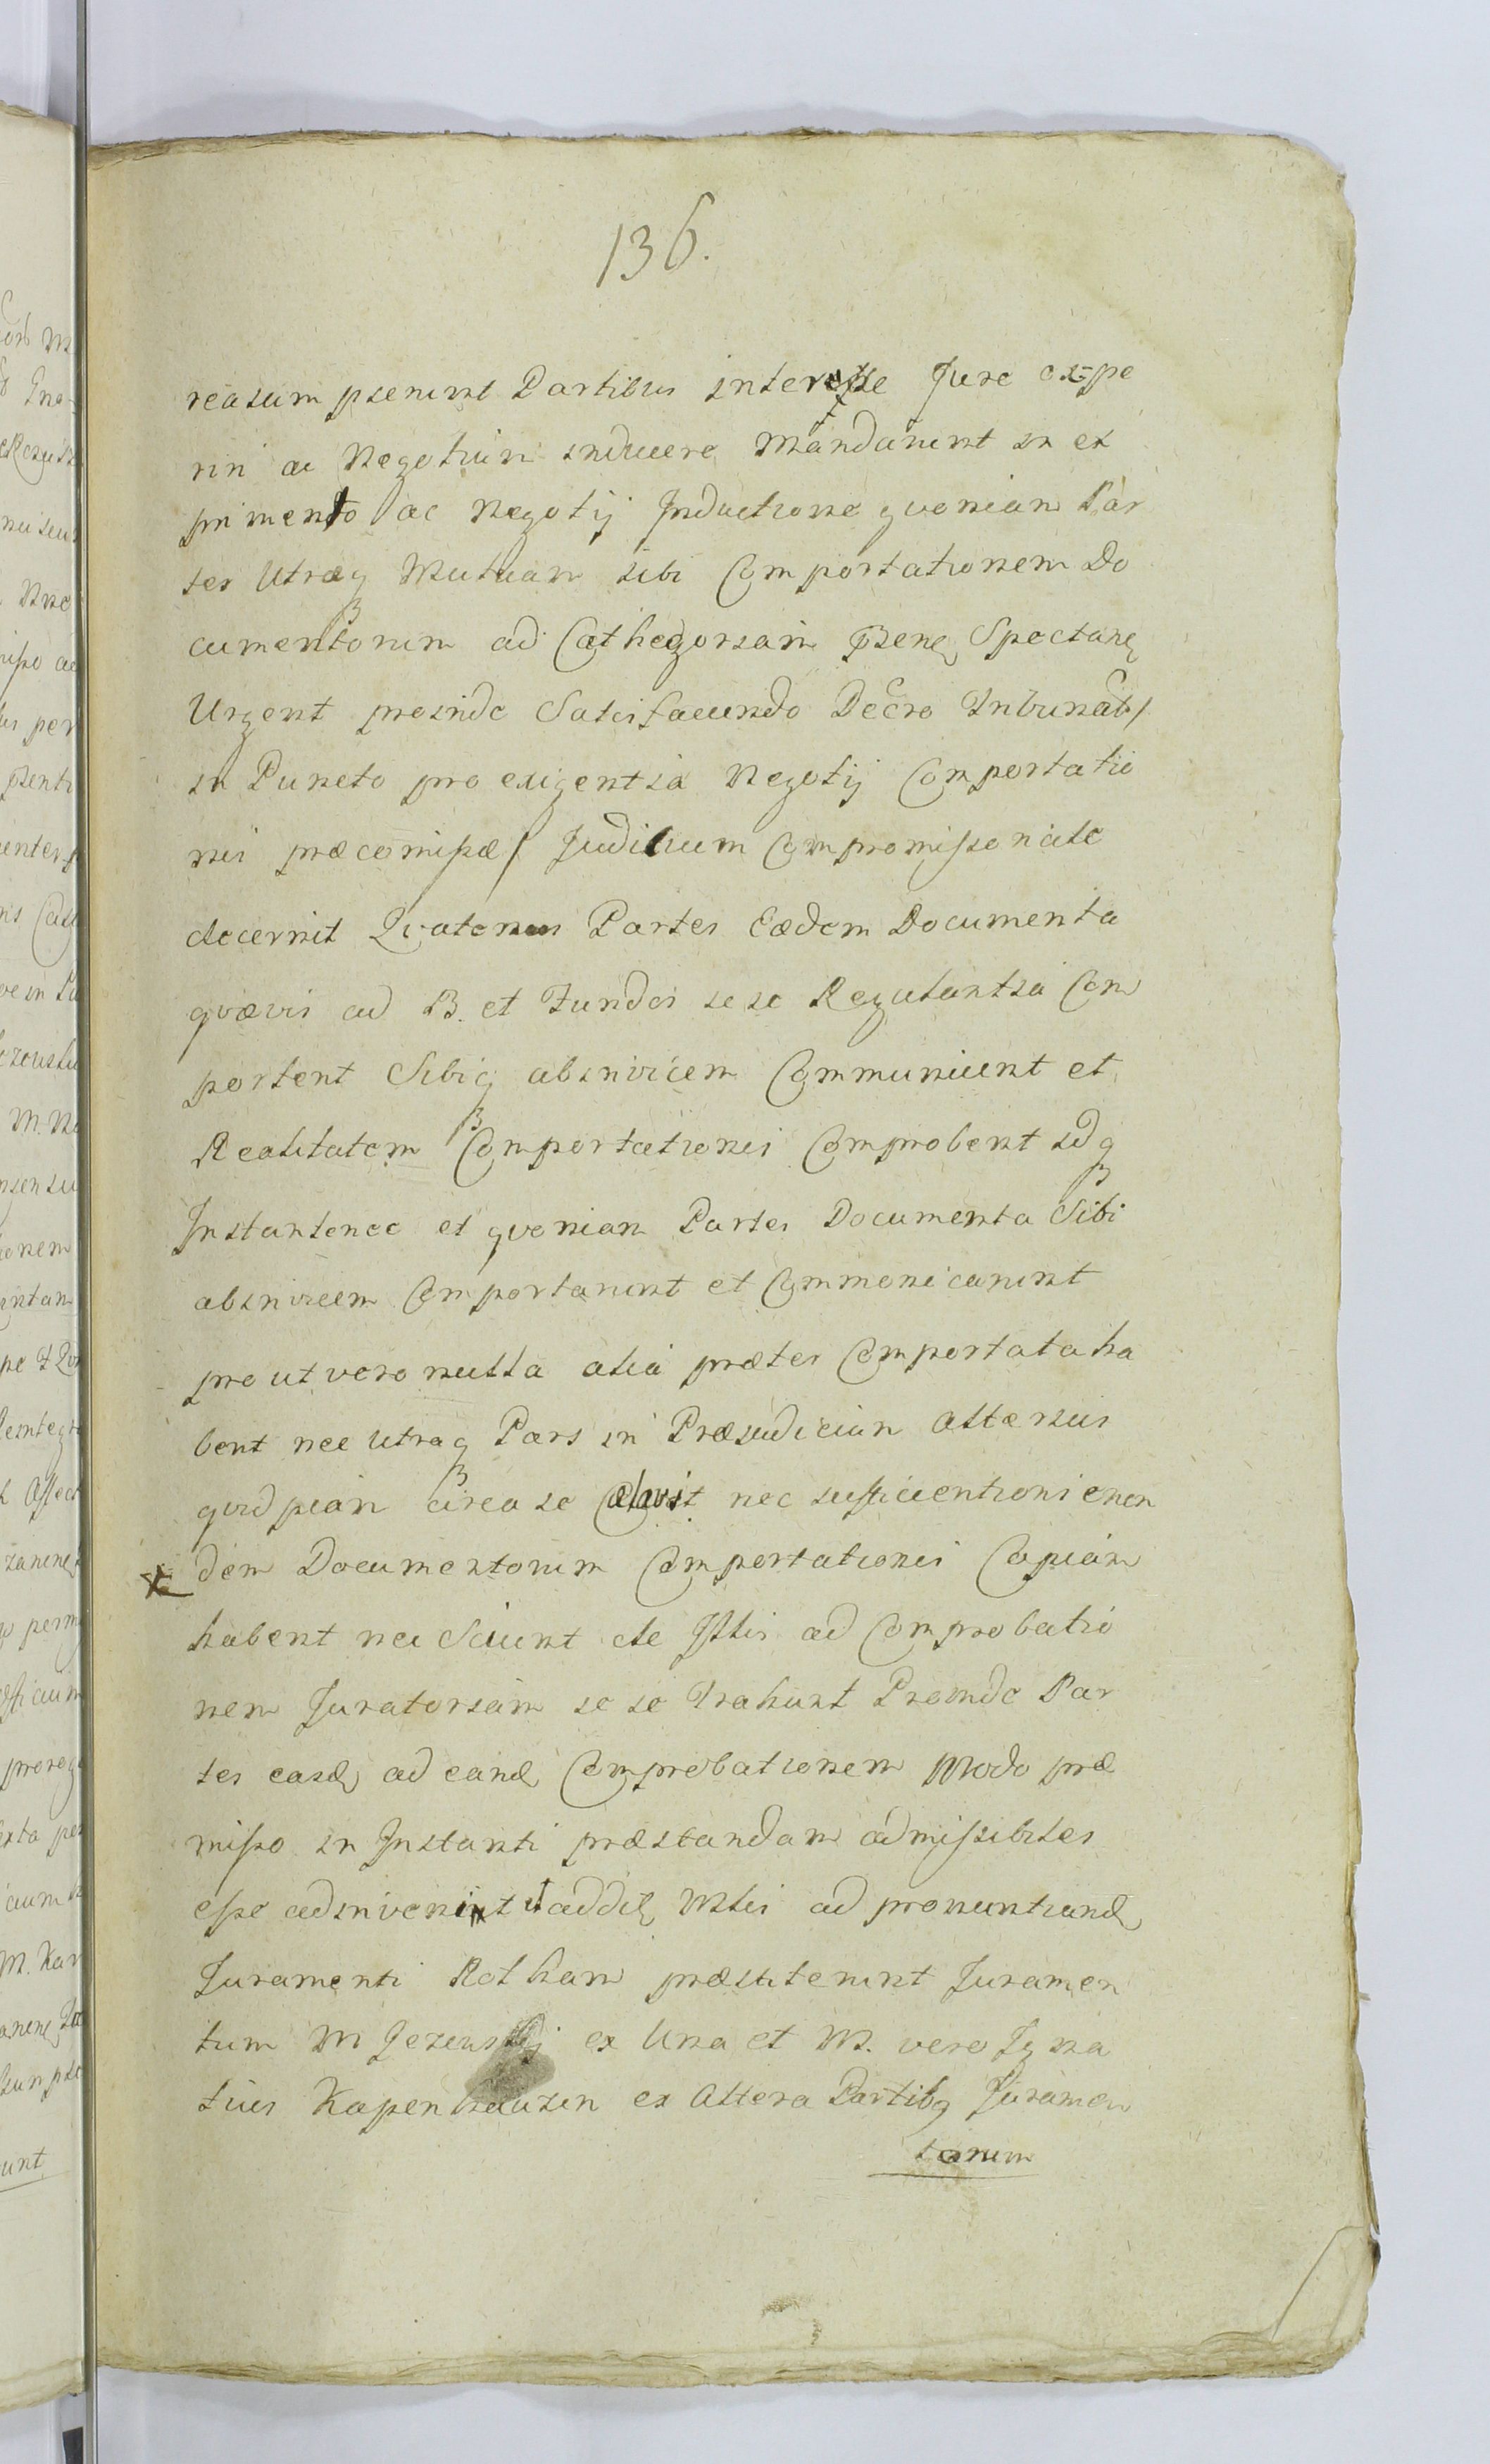 136.
reasumpserunt Partibus interesse Jure expe
riri ac Negotium inducere Mandarunt in ex
perimento ac Negotij Inductione qvoniam Par
tes Utræq Mutuam sibi Comportationem Do
cumentorum ad Cathegoriam Bene, Spectane,
Urgent proinde Satisfaciendo Decro Tribunal/
in Puncto pro exigentia Negotij Comportatio
nis præcomissæ/ Judicium Compromissoriale
decernit Qvatenus Partes Eædem Documenta
qvævis ad B. et Fundos sese Regulantia Com
portent Sibiq abinvicem Communicent et
Realitatem Comportationis Comprobent idq
Instantenee et qvoniam Partes Documenta Sibi
abinvicem Comportarunt et Commonicarunt
prout vero nulla alia præter Comportata ha
bent nec Utraq Pars in Præjudicium Alterius
qvidpiam circa se celavit nec sufficientioris eorun
dem Documentorum Comportationis Copiam
habent nec Sciunt de Illis ad Comprobatio
nem Juratoriam sese Trahunt Proinde Par
tes easd, ad eand, Comprobationem Modo præ
misso in Instanti præstandam admissibiles
esse adinvenit et addit, Mtis ad pronuntiand,
Juramenti Rotham præstiterunt Juramen
tum M Jezewskij ex Una et M. vero Igna
tius Kapenhauzen ex Altera Partibq Juramen
torum